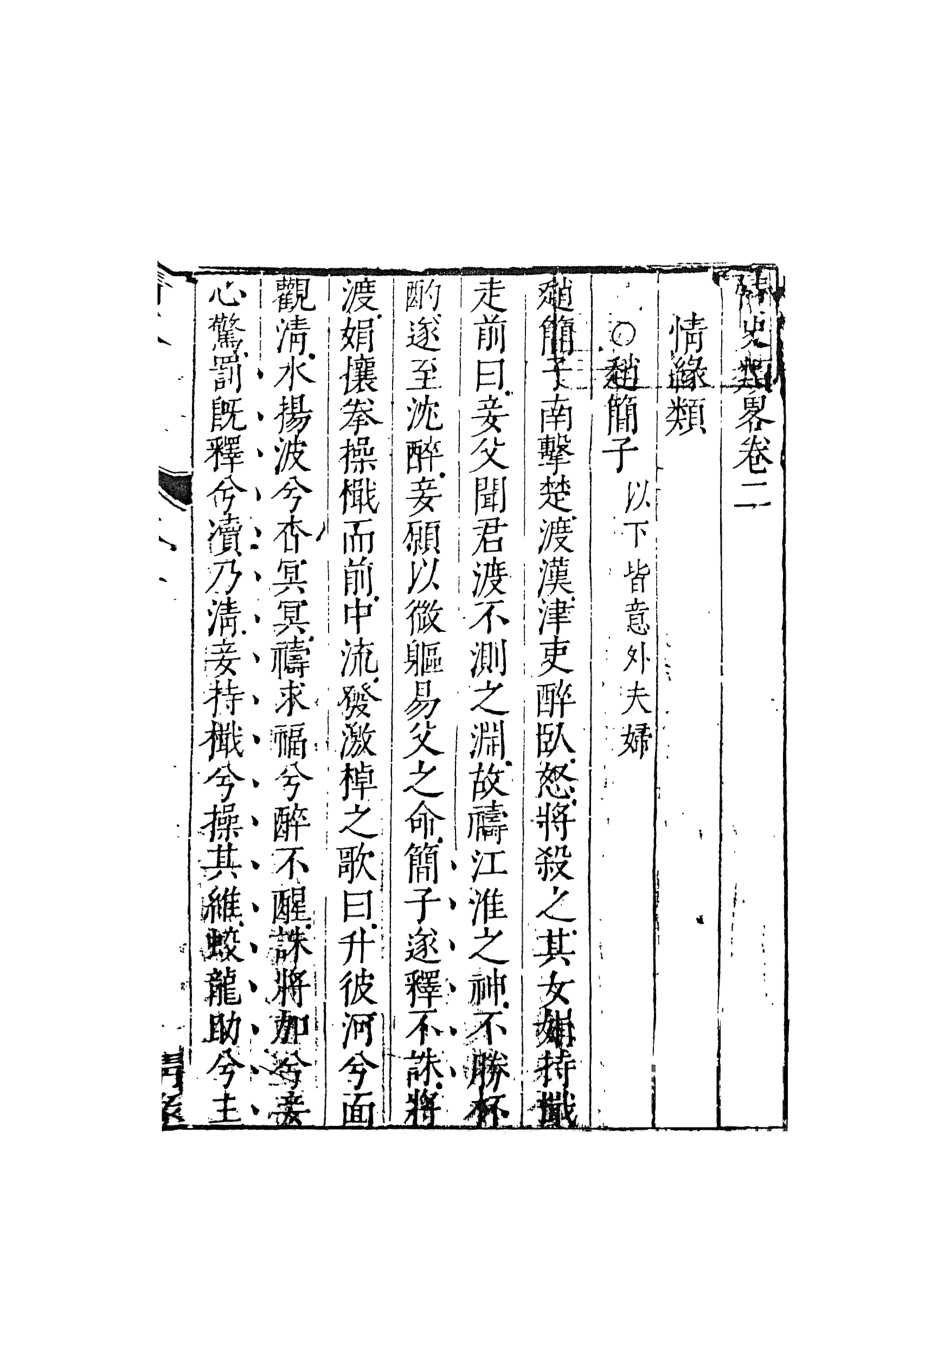 情史類畧卷二
情緣類
○趙簡子 以下皆意外夫婦
趙簡子南擊楚渡漢津吏醉臥怒將殺之其女娟持檝
走前曰妾父聞君渡不測之淵故禱江淮之神不勝杯
酌遂至沈醉妾願以微軀易父之命簡子遂釋不誅將
渡娟攘拳操檝而前中流發激棹之歌曰升彼河兮面
觀清水揚波兮杳冥冥禱求福兮醉不醒誅將加兮妾
心驚罰既釋兮瀆乃清妾持檝兮操其維蛟龍助兮主